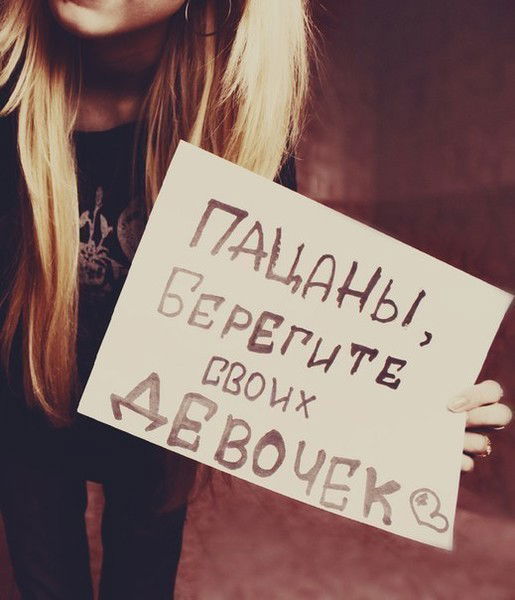 ПАЦАНЫ,
БЕРЕГИТЕ
СВОИХ
ДЕВОЧЕК